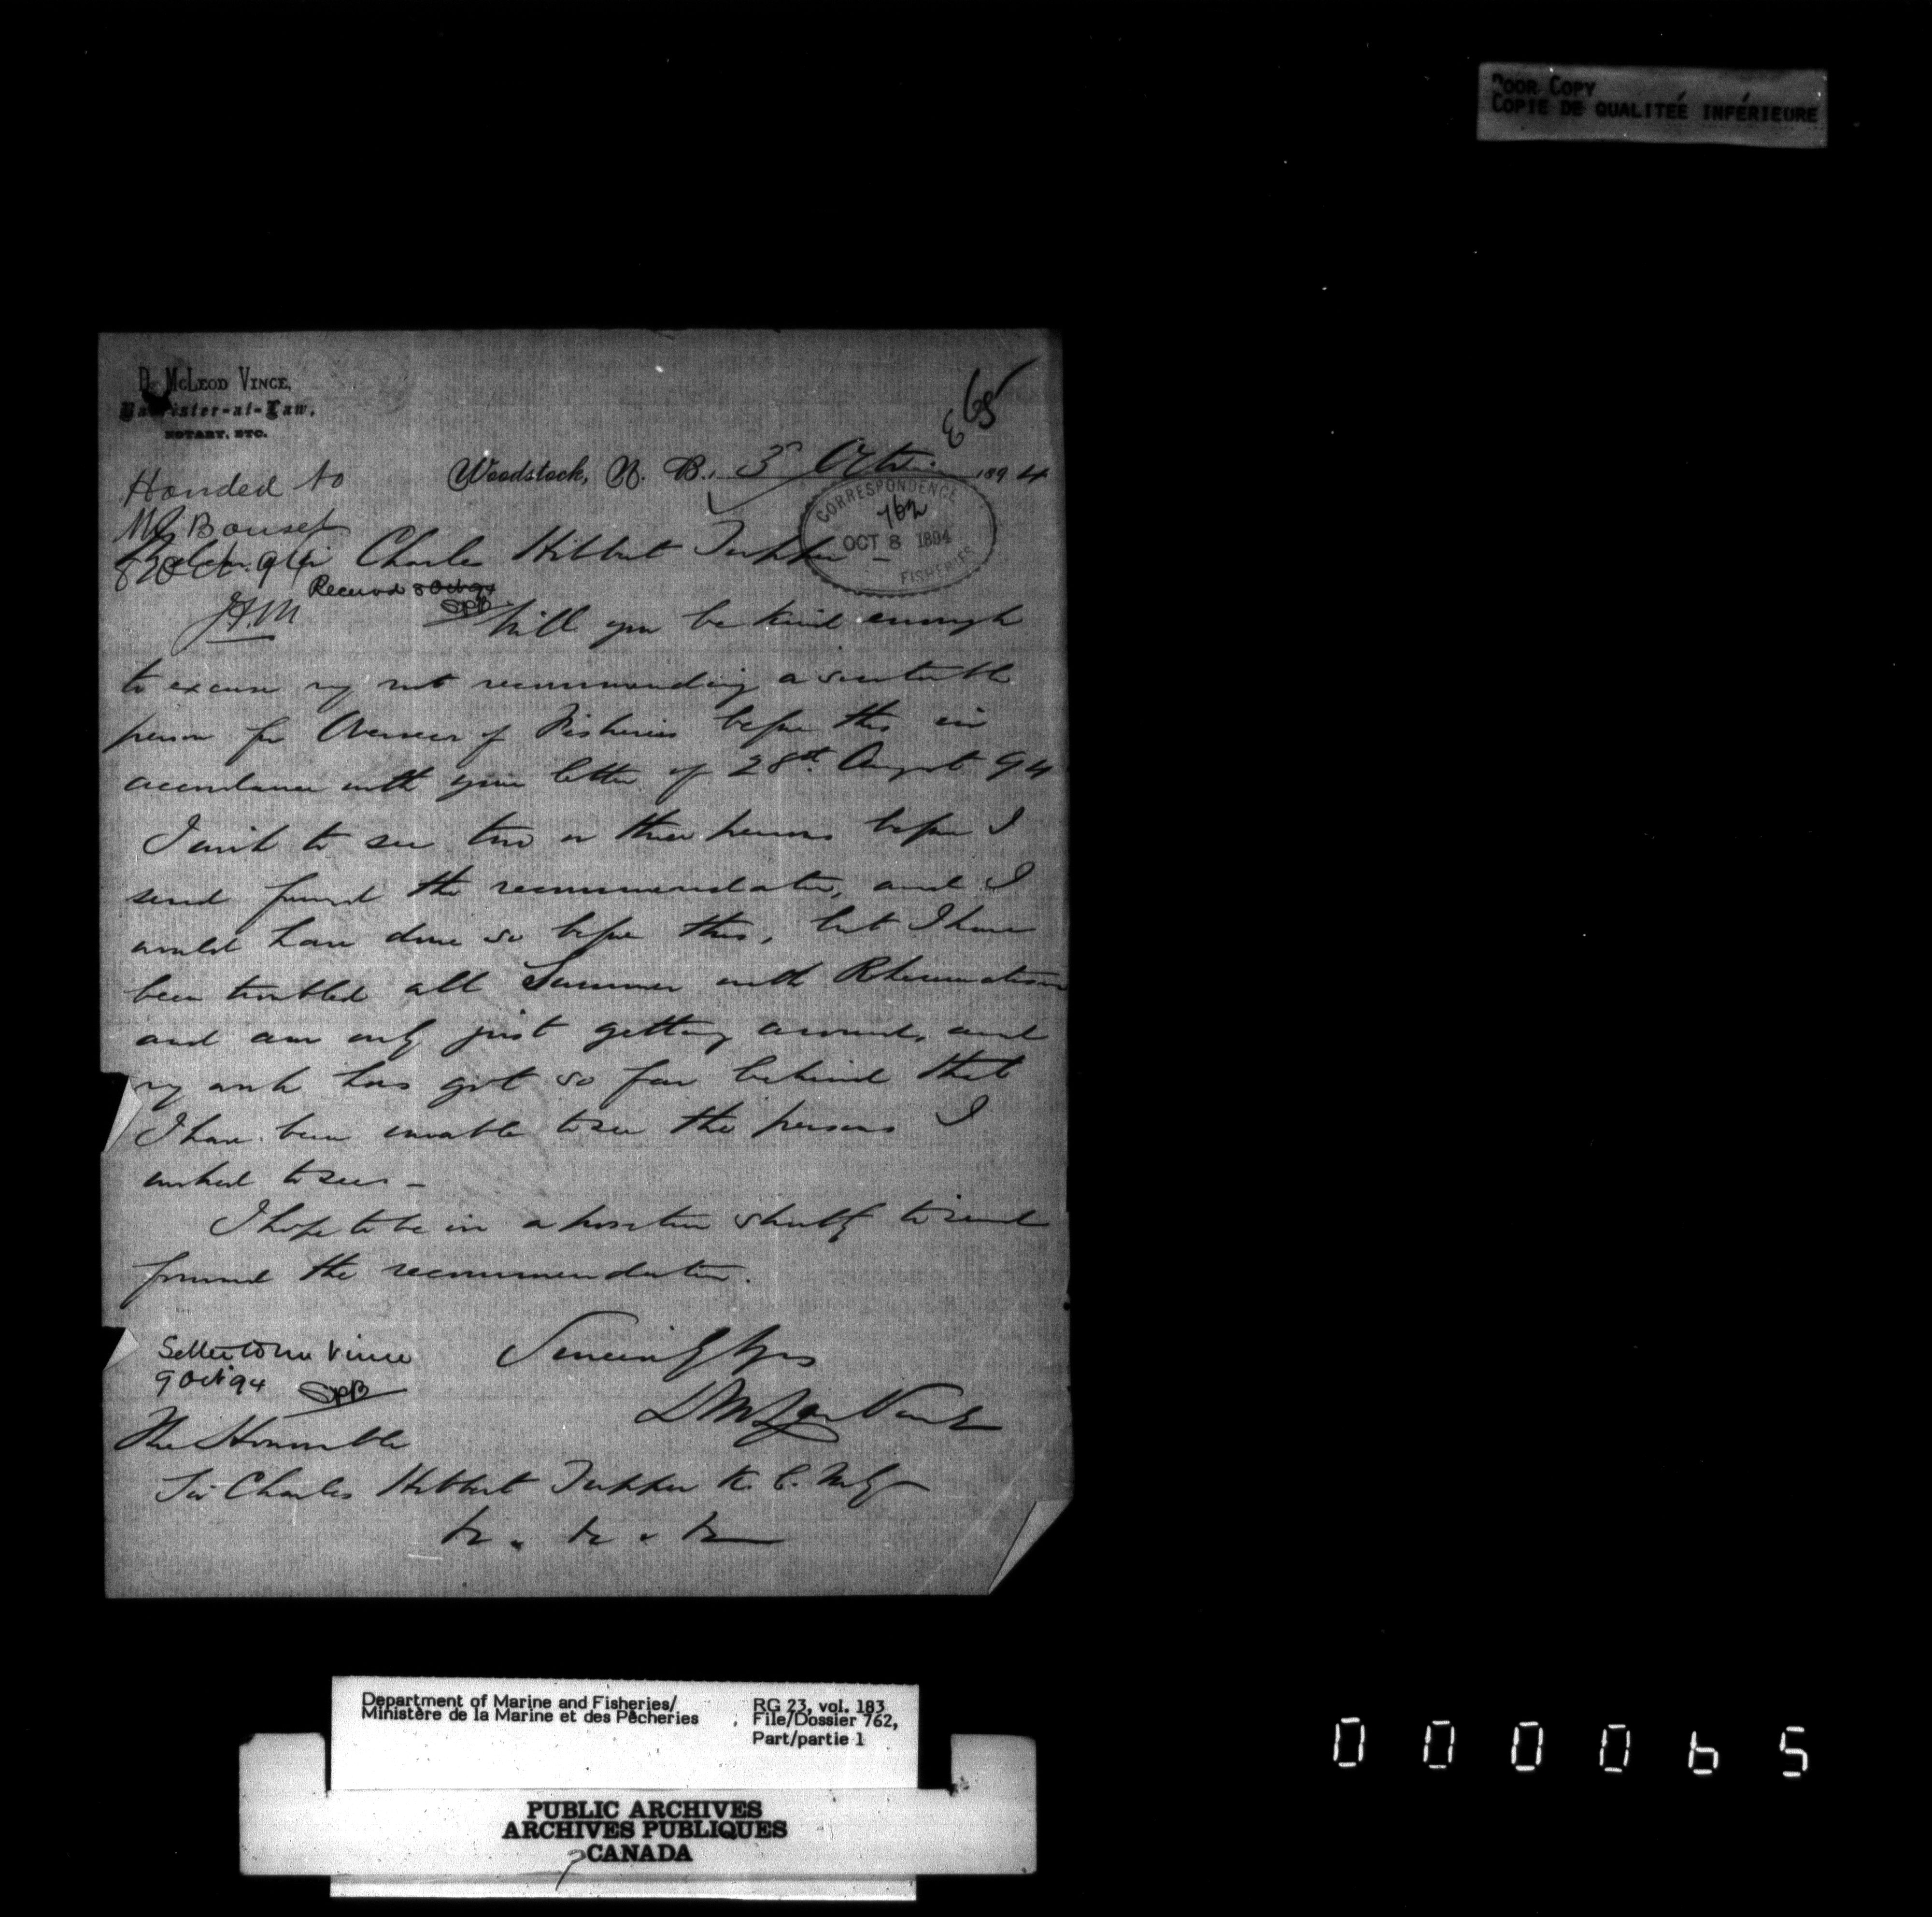 POOR COPY
COPIE DE QUALITEÉ INFÉRIEURE
D. McLEOD VINCE,
Barrister-at-Law,
NOTARY, ETC.
65
Woodstock, N. B., 3 October 1894
Handed to
Mr Bauset
8 Oct. 94
CORRESPONDENCE
762
OCT 8 1894
FISHERIES
Sir Charles Hibbert Tupper -
Received 8 Oct 94
SPB
J.H.M
Will you be kind enough
to excuse my not recommending a suitable
person for Overseer of Fisheries before this in
accordance with your letter of 28th August 94
I wish to see two or three persons before I
send forward the recommendation, and I
would have done so before this, but I have
been troubled all Summer with Rheumatism
and am only just getting around, and
my work has got so far behind that
I have been unable to see the persons I
wished to see -
I hope to be in a position shortly to send
forward the recommendation.
Sincerely Yrs
D McLeod Vince
Letter to Mr Vince
9 Oct 94 SPB
The Honorable
Sir Charles Hibbert Tupper K. C. M. G
&c. &c. &c
Department of Marine and Fisheries/
Ministère de la Marine et des Pêcheries
RG 23, vol. 183
File/Dossier 762,
Part/partie 1
PUBLIC ARCHIVES
ARCHIVES PUBLIQUES
CANADA
000065